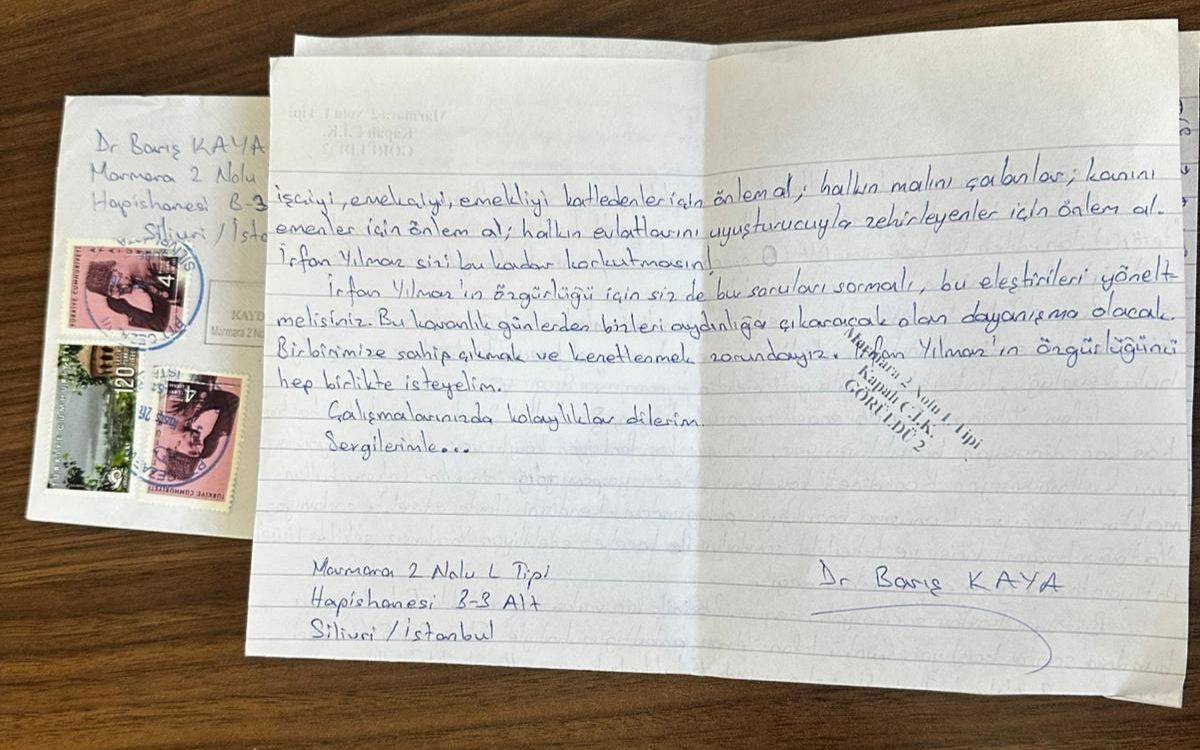 Dr Barış KAYA
Marmara 2 Nolu
Hapishanesi B-3
Silivri / İsta
KAYD
Marmara 2 No
TÜRKİYE CUMHURİYETİ
4
120
TÜRKİYE CUMHURİYETİ
4
işçiyi, emekçiyi, emekliyi katledenler için önlem al; halkın malını çalanlar; kanını
emenler için önlem al; halkın evlatlarını uyuşturucuyla zehirleyenler için önlem al.
İrfan Yılmaz sizi bu kadar korkutmasın!
İrfan Yılmaz'ın özgürlüğü için siz de bu soruları sormalı, bu eleştirileri yönelt
melisiniz. Bu karanlık günlerden bizleri aydınlığa çıkaracak olan dayanışma olacak.
Birbirimize sahip çıkmak ve kenetlenmek zorundayız. İrfan Yılmaz'ın özgürlüğünü
hep birlikte isteyelim.
Çalışmalarınızda kolaylıklar dilerim.
Sevgilerimle...
Marmara 2 Nolu L Tipi
Kapalı C.İ.K.
GÖRÜLDÜ 2
Marmara 2 Nolu L Tipi
Hapishanesi B-3 Alt
Silivri / İstanbul
Dr Barış KAYA